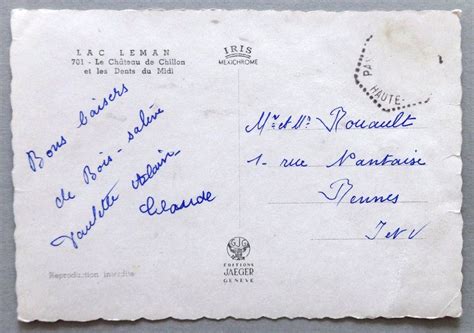 LAC LEMAN
701 - Le Château de Chillon
et les Dents du Midi
IRIS
MEXICHROME
HAUTE-
Bons baisers
de Bois-salève
Paulette Alain
Claude
Mr et Mme Rouault
1 - rue Nantaise
Rennes
I et V
EDITIONS
JAEGER
GENEVE
Reproduction interdite